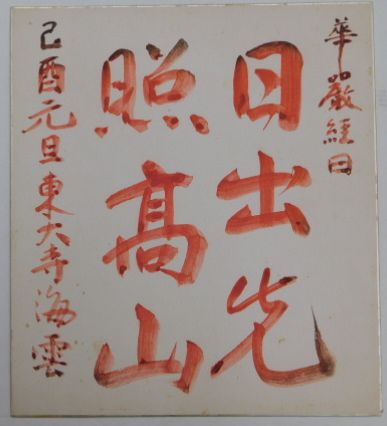 華嚴経曰
日出先
照高山
己酉元旦東大寺海雲